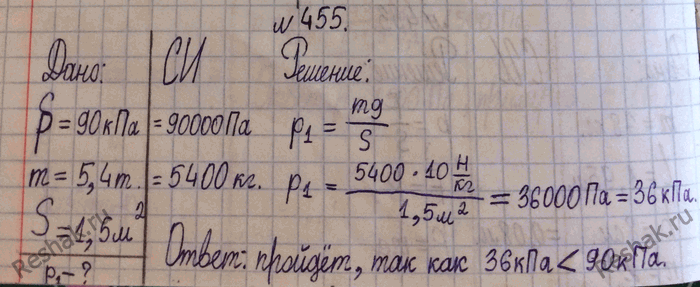 №455.
Дано: СИ Решение:
p = 90 кПа = 90000 Па p₁ = mg/S
m = 5,4 т. = 5400 кг. p₁ = 5400 · 10 Н/кг / 1,5 м² = 36000 Па = 36 кПа.
S = 1,5 м²
p₁ - ?
Ответ: пройдёт, так как 36 кПа < 90 кПа.
Reshak.ru
Reshak.ru